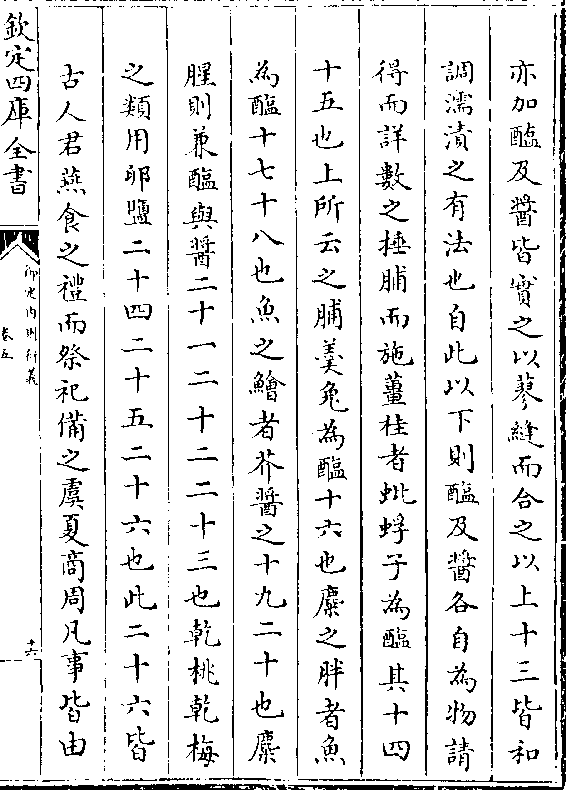 亦加醢及醬皆實之以蓼縫而合之以上十三皆和
調濡漬之有法也自此以下則醢及醬各自為物請
得而詳數之捶脯而施薑桂者蚳蜉子為醢其十四
十五也上所云之脯羮兔為醢十六也麋之胖者魚
為醢十七十八也魚之鱠者芥醬之十九二十也麋
腥則兼醢與醬二十一二十二二十三也乾桃乾梅
之類用卵鹽二十四二十五二十六也此二十六皆
古人君燕食之禮而祭祀備之虞夏商周凡事皆由
欽定四庫全書
御定內則衍義
卷五
十六